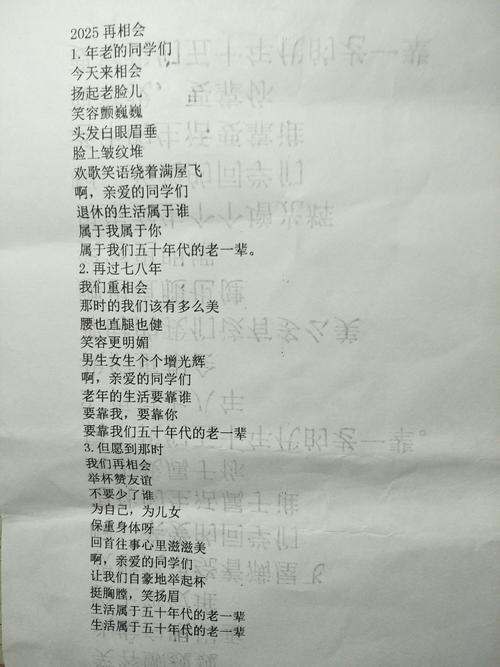 2025 再相会
1.年老的同学们
今天来相会
扬起老脸儿
笑容颤巍巍
头发白眼眉垂
脸上皱纹堆
欢歌笑语绕着满屋飞
啊，亲爱的同学们
退休的生活属于谁
属于我属于你
属于我们五十年代的老一辈。
2.再过七八年
我们重相会
那时的我们该有多么美
腰也直腿也健
笑容更明媚
男生女生个个增光辉
啊，亲爱的同学们
老年的生活要靠谁
要靠我，要靠你
要靠我们五十年代的老一辈
3.但愿到那时
我们再相会
举杯赞友谊
不要少了谁
为自己，为儿女
保重身体呀
回首往事心里滋滋美
啊，亲爱的同学们
让我们自豪地举起杯
挺胸膛，笑扬眉
生活属于五十年代的老一辈
生活属于五十年代的老一辈